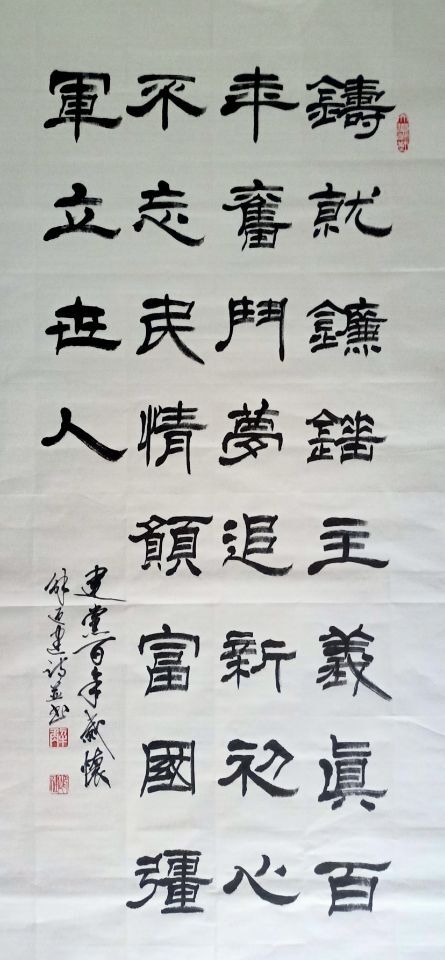 鑄就鐮錘主義眞百
年奮鬥夢追新初心
不忘民情願富國彊
軍立世人
建黨百年感懷
建詩並書